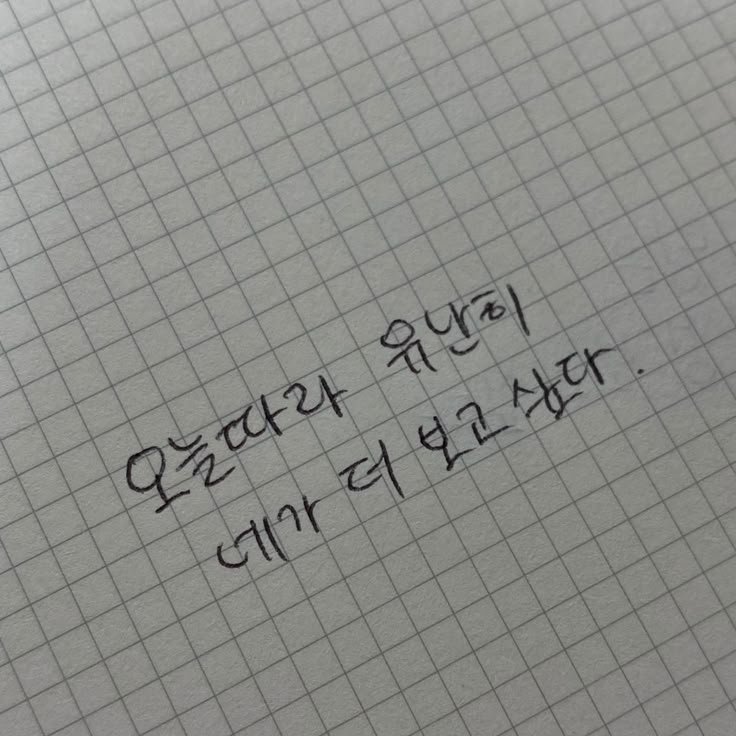 오늘따라 유난히
네가 더 보고싶다.